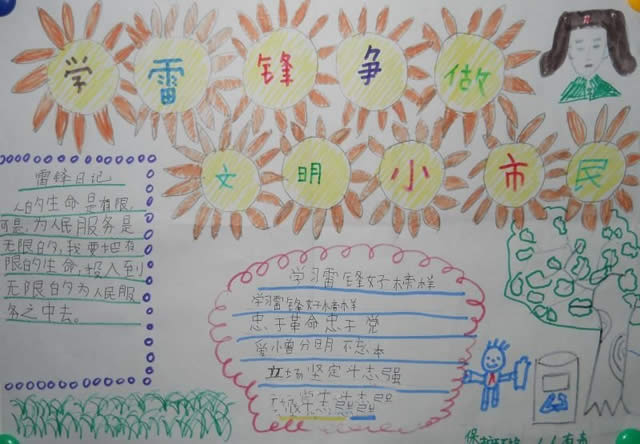 学雷锋争做
文明小市民
雷锋日记
人的生命是有限,
可是,为人民服务是
无限的,我要把有
限的生命,投入到
无限的为人民服
务之中去。
学习雷锋好榜样
学习雷锋好榜样
忠于革命忠于党
爱小曾分明不忘本
立场坚定斗志强